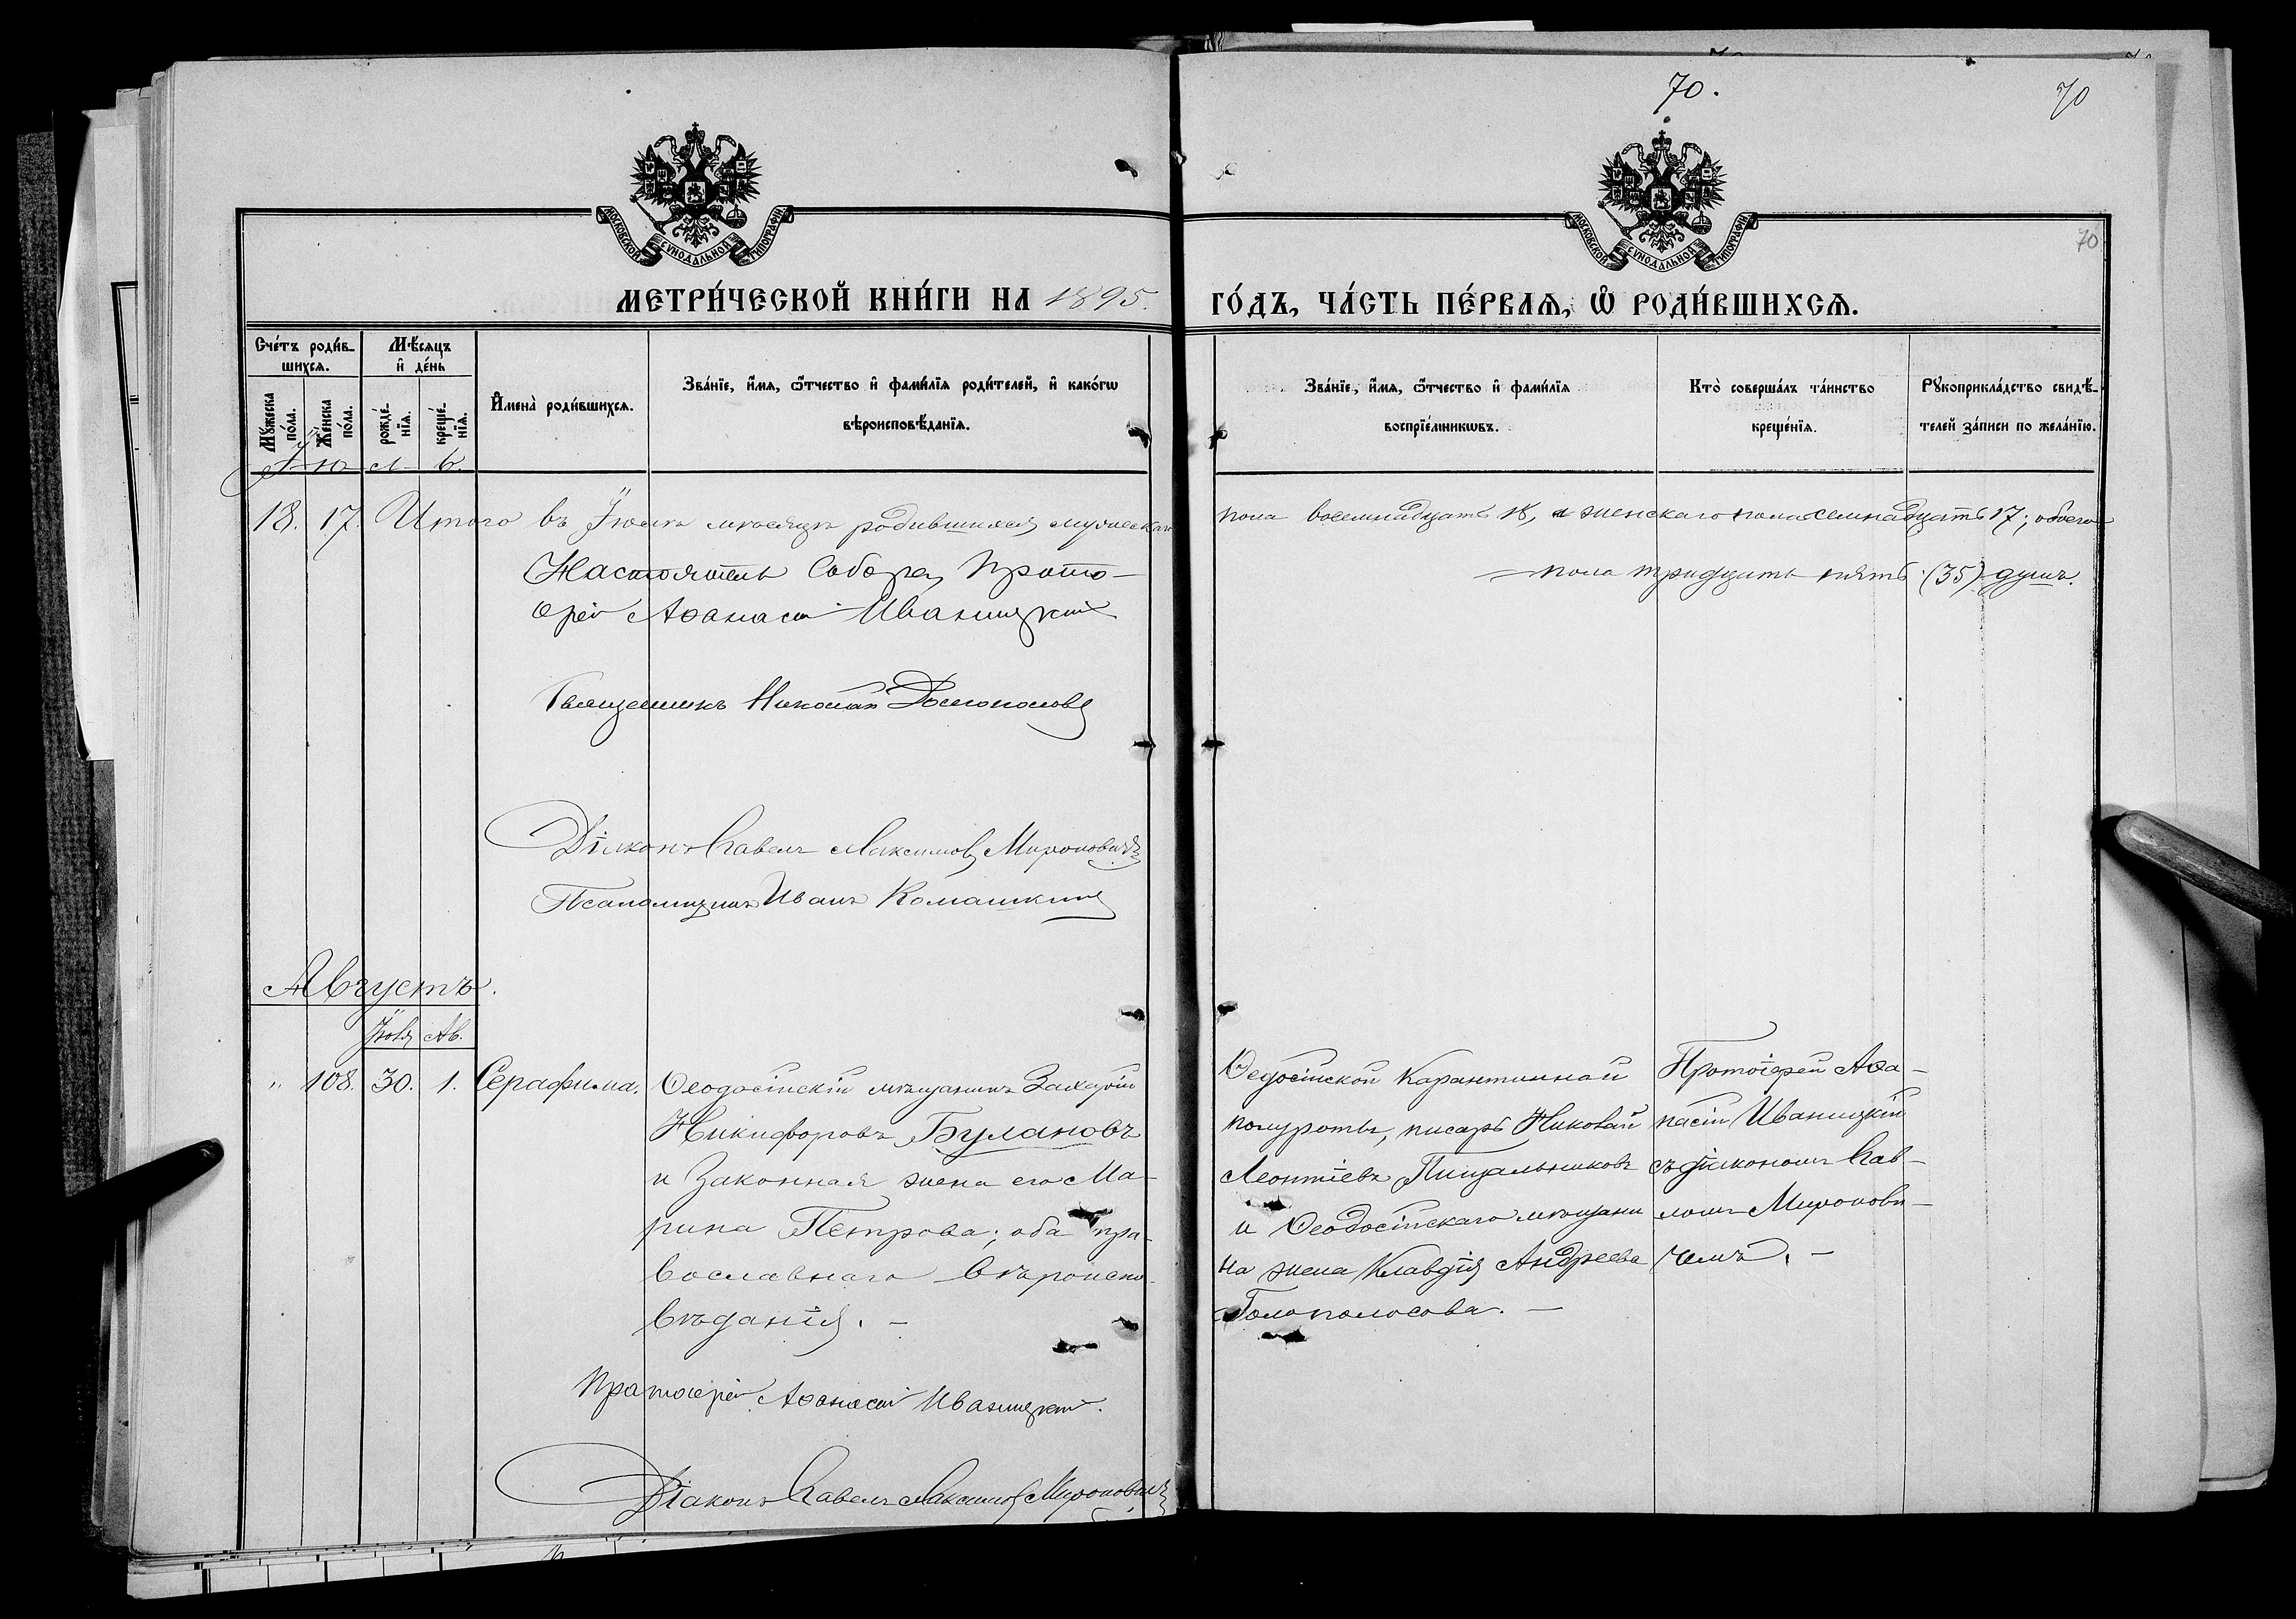 70.
70
70
МОСКОВСКОЙ СѴНОДАЛЬНОЙ ТИПОГРАФІИ
МОСКОВСКОЙ СѴНОДАЛЬНОЙ ТИПОГРАФІИ
МЕТРИ́ЧЕСКОЙ КНИ́ГИ НА 1895.
ГО́ДЪ, ЧА́СТЬ ПЕ́РВАѦ, Ѡ҆ РОДИ́ВШИХСѦ.
Сче́тъ роди́в-
шихсѧ.
Мѣ́сѧцъ
и҆ де́нь
Мꙋ́жеска
по́ла.
Же́нска
по́ла.
рожде́-
нїѧ.
креще́-
нїѧ.
И҆мена̀ роди́вшихсѧ.
Зва́нїе, и҆́мѧ, ѻ҆́тчество и҆ фами́лїѧ роди́телей, и҆ како́гѡ
вѣроисповѣ́данїѧ.
Зва́нїе, и҆́мѧ, ѻ҆́тчество и҆ фами́лїѧ
воспрїе́мникѡвъ.
Кто̀ соверша́лъ та́инство
креще́нїѧ.
Рꙋкоприкла́дство свидѣ́-
телей за́писи по жела́нїю.
18. 17. Итого въ Іюлѣ мѣсяцѣ родившихся мужескаго
пола восемнадцать 18, а женскаго пола семнадцать 17; обоего
пола тридцать пять (35) душъ.
Настоятель Собора, Прото-
ерей Аѳанасій Иваницкій
Священникъ Николай
Діаконъ Павелъ Максимовъ Мироновичъ
Псаломщикъ Иванъ Комашкинъ
Августъ.
Іюль Ав.
" 108. 30. 1. Серафима.
Ѳеодосійскій мѣщанинъ Захарій
Никифоровъ Булановъ
и Законная жена его Ма-
рина Петрова; оба пра-
вославнаго вѣроиспо-
вѣданія. —
Ѳедосійской Карантинной
полуроты, писарь Николай
Леонтіевъ Пищальниковъ
и Ѳеодосійскаго мѣщани
на жена Клавдія Андреева
Голополосова. —
Протоіерей Аѳа-
насій Иваницкій
съ діакономъ Пав-
ломъ Миронови-
чемъ. —
Протоіерей Аѳанасій Иваницкій.
Діаконъ Павелъ Максимовъ Мироновичъ